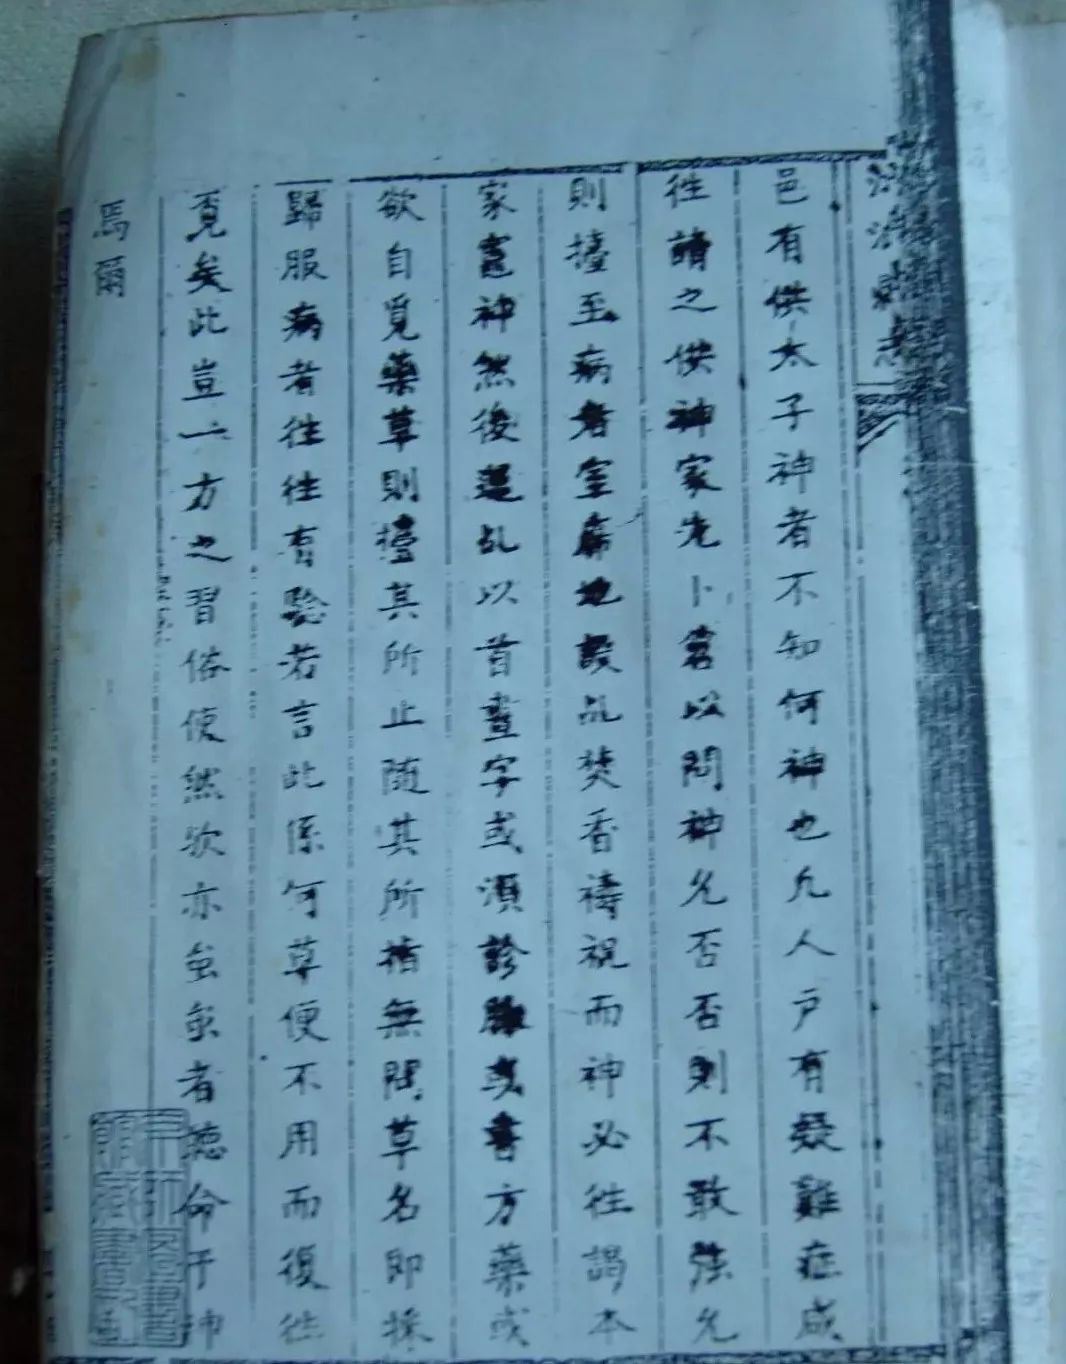 洮沙縣志
邑有供太子神者不知何神也凡人戶有疑難症咸
往請之供神家先卜筶以問神允否否則不敢強允
則擡至病者室席地設乩焚香禱祝而神必往謁本
家竈神然後還乩以首畫字或須診脉或書方藥或
欲自覓藥草則擡其所止随其所指無問草名即採
歸服病者往往有驗若言此係何草便不用而復往
覓矣此豈一方之習俗使然欤亦蚩蚩者聽命于神
焉爾